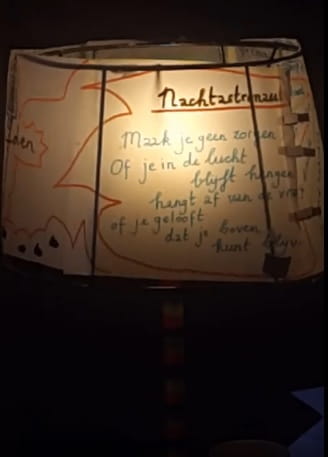 Nachtastronau
Maak je geen zorgen
Of je in de lucht
blijft hangen
hangt af van de vraa
of je gelooft
dat je boven
kunt blijv